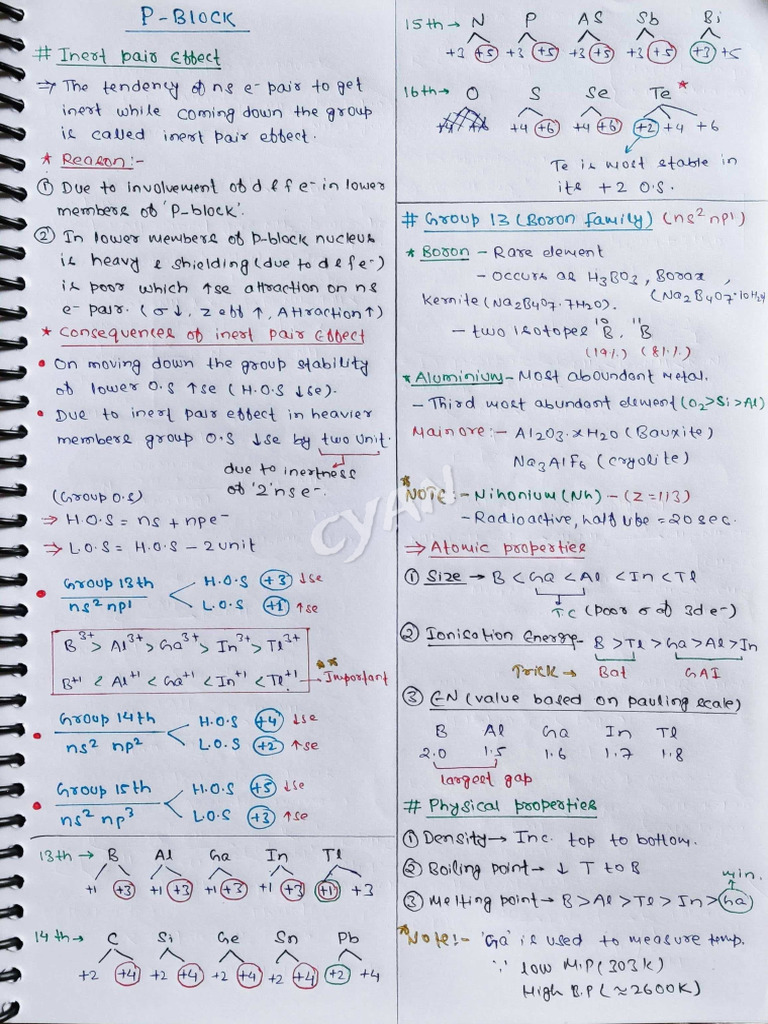 P-BLOCK
# Inert pair effect
⇒ The tendency of ns e- pair to get
inert while coming down the group
is called inert pair effect.
* Reason:-
① Due to involvement of d & f e- in lower
members of 'P-block'.
② In lower members of p-block nucleus
is heavy & shielding (due to d & f e-)
is poor which ↑se attraction on ns
e- pair. (σ↓, Z eff ↑, Attraction↑)
* Consequences of inert pair effect
• On moving down the group stability
of lower O.S ↑se (H.O.S ↓se).
• Due to inert pair effect in heavier
members group O.S ↓se by two unit.
due to inertness
of '2' ns e-.
(Group O.S)
⇒ H.O.S = ns + np e-
⇒ L.O.S = H.O.S - 2 unit
• Group 13th H.O.S +3 ↓se
ns² np¹ L.O.S +1 ↑se
B³⁺ > Al³⁺ > Ga³⁺ > In³⁺ > Tl³⁺
B⁺¹ < Al⁺¹ < Ga⁺¹ < In⁺¹ < Tl⁺¹ ** → Important
• Group 14th H.O.S +4 ↓se
ns² np² L.O.S +2 ↑se
• Group 15th H.O.S +5 ↓se
ns² np³ L.O.S +3 ↑se
13th → B Al Ga In Tl
+1 +3 +1 +3 +1 +3 +1 +3 +1 +3
14th → C Si Ge Sn Pb
+2 +4 +2 +4 +2 +4 +2 +4 +2 +4
15th → N P AS Sb Bi
+3 +5 +3 +5 +3 +5 +3 +5 +3 +5
16th → O S Se Te*
+4 +6 +4 +6 +2 +4 +6
Te is most stable in
its +2 O.S.
# Group 13 (Boron family) (ns² np¹)
* Boron - Rare element
- Occurs as H3BO3, Borax,
(Na2B4O7·10H2O)
Kernite (Na2B4O7·7H2O).
- two isotopes ¹⁰B, ¹¹B
(19%) (81%)
* Aluminium - Most aboundant metal.
- Third most abundant element (O2>Si>Al)
Main ore:- Al2O3.xH2O (Bauxite)
Na3AlF6 (cryolite)
* NOTE:- Nihonium (Nh) - (Z=113)
- Radioactive, half life = 20 sec.
⇒ Atomic properties
① Size → B < Ga < Al < In < Tl
T.C (poor σ of 3d e-)
② Ionisation Energy- B > Tl > Ga > Al > In
Trick → Bat GAI
③ EN (value based on pauling scale)
B Al Ga In Tl
2.0 1.5 1.6 1.7 1.8
largest gap
# Physical properties
① Density → Inc. top to bottom.
② Boiling point → ↓ T to B
min.
③ Melting point → B > Al > Tl > In > Ga
* Note:- 'Ga' is used to measure temp.
∵ low M.P (303K)
High B.P (≈2600K)
CYAN